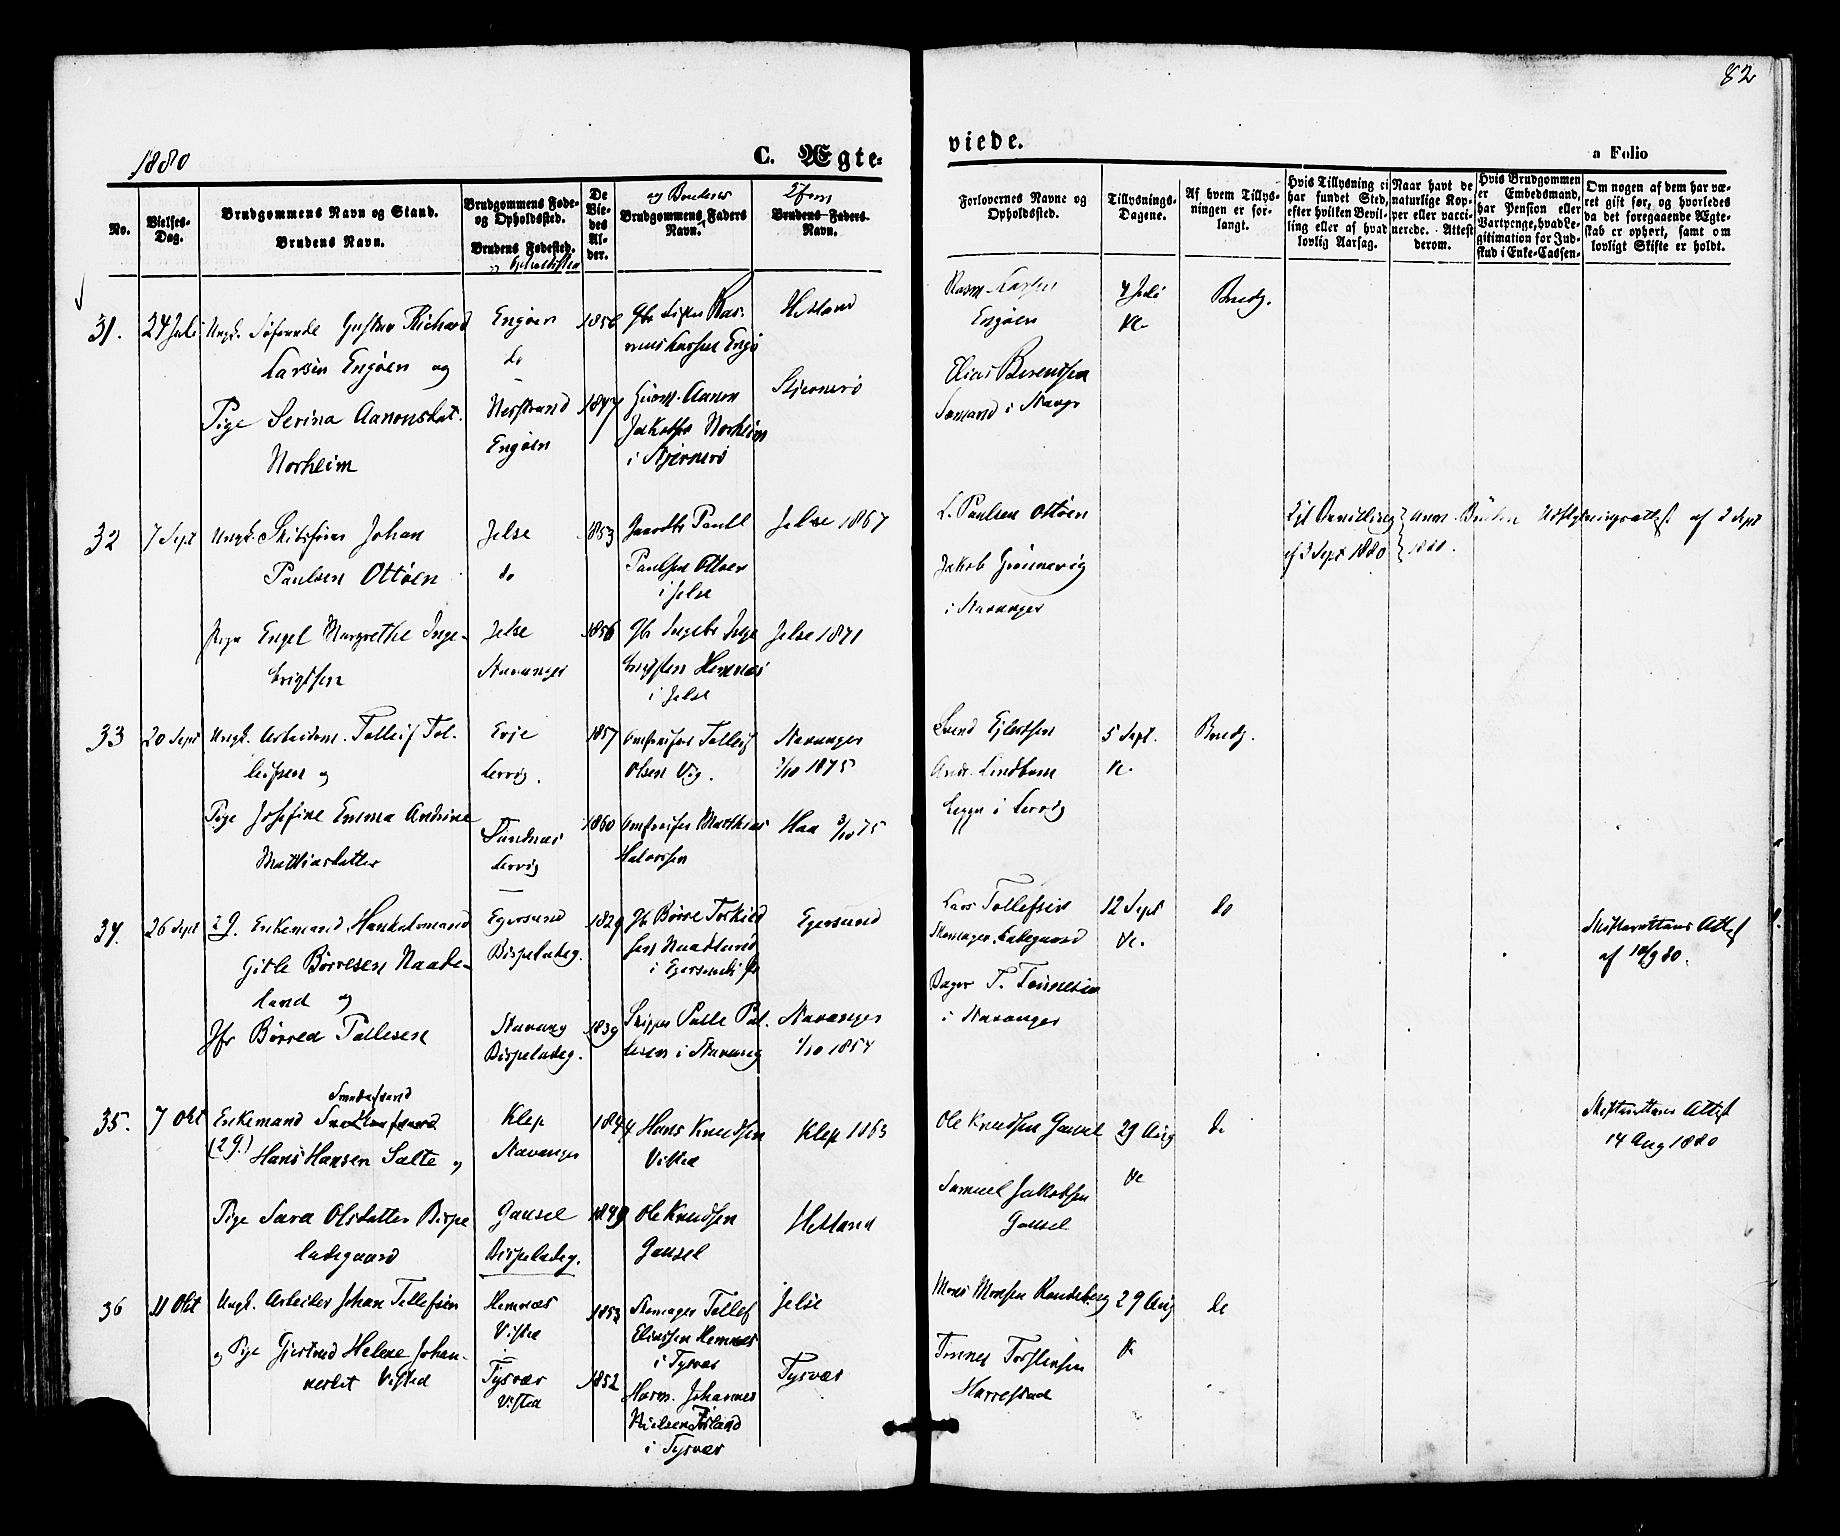 82
1880
C. Ægte-
viede.
a Folio
No.
Vielses-
Dag.
Brudgommens Navn og Stand.
Brudens Navn.
Brudgommens Føde-
og Opholdssted.
Brudens Fødested.
og Opholdssted
De
Vie-
des
Al-
der.
og Brudens
Brudgommens Faders
Navn.
Brudens Faders
Navn.
Forlovernes Navne og
Opholdssted.
Tillysnings-
Dagene.
Af hvem Tillys-
ningen er for-
langt.
Hvis Tillysning ei
har fundet Sted,
efter hvilken Bevil-
ling eller af hvad
lovlig Aarsag.
Naar havt de
naturlige Kop-
per eller vacci-
nerede. Attest
derom.
Hvis Brudgommen
er Embedsmand,
har Pension eller
Vartpenge, hvad Le-
gitimation for Ind-
skud i Enke-Cassen.
Om nogen af dem har væ-
ret gift før, og hvorledes
da det foregaaende Ægte-
skab er ophørt, samt om
lovligt Skifte er holdt.
31.
24 Juli
Ungk. Søfarende Gustav Richard
Larsen Engøen og
Pige Serina Aanonsdat.
Norheim
Engøen
do
Nerstrand
Engøen
1847
Ras-
mus Larsen Engø
Aanon
Jakobsen Norheim
i Stjernerø
Hetland
Stjernerø
Rasm. Larsen
Engøen
Elias Berentsen
Sømand i Stavgr
4 Juli
Brudg.
32
7 Sept
Ungk. Skibsfører Johan
Paulsen Ottøen
Pige Engel Margrethe Inge-
brigtsen
Jelse
do
Jelse
Stavanger
1853
1856
Paul
Paulsen Ottøen
i Jelse
Gbr Ingebr Inge
brigtsen Hemnes
i Jelse
Jelse 1867
Jelse 1871
L. Paulsen Ottøen
Jakob Grønnevig
i Stavanger
Kgl Bevilling
af 3 Sept 1880
Anm. Bruden Udflytningsattest af 2 Sept
1880.
33
20 Sept
Ungk. Arbeidsm. Tolleif Tol-
leifsen og
Pige Josefine Emma Andrine
Mathiasdatter
Evje
Lervig.
Sandnæs
Lervig
1857
1860
Tolleif
Olsen Vig.
Mathias
Halvorsen
Stavanger
3/10 1875
Haa 3/10 75
Svend Ejlertsen
Andr. Lindbom
i Lervig
5 Sept.
Brudg.
34.
26 Sept
2 G. Enkemand, Handelsmand
Gitle Børresen Naade-
land og
Jfr Børrea Pallesen
Egersund
Bispeladeg.
Stavang
Bispeladeg.
1829
1839
Gb Børre Torkild
sen Naadland
i Egersunds
Skipper Palle Pal-
lesen i Stavang
Egersund
Stavanger
1/10 1854
Lars Tollefsen
Bager T. Tønnesen
i Stavanger
12 Sept
do
Skifterettens Attest
af 10/9 80.
35.
7 Okt
Enkemand
(2 G.)
Hans Hansen Salte og
Pige Sara Olsdatter Bispe
ladegaard
Klep
Stavanger
Gausel
Bispeladeg.
1844
1849
Hans Knudsen
Visted
Ole Knudsen
Gausel
Klep 1863
Hetland
Ole Knudsen Gausel
Samuel Jakobsen
Gausel
29 Aug
do
Skifterettens Attest
14 Aug 1880
36
11 Okt
Ungk. Arbeider Johan Tollefsen
og Pige Gjertrud Helene Johan-
nesdat Visted
Hemnæs
Visted
Tysvær
Visted
1853
1852
Skomager Tollef
Eliassen Hemnæs
i Tysvær
Johannes
Nielsen Førland
i Tysvær
Jelse
Tysvær
Mons Monsen Randeberg
Tønnes Torstensen
Harrestad
29 Aug
do